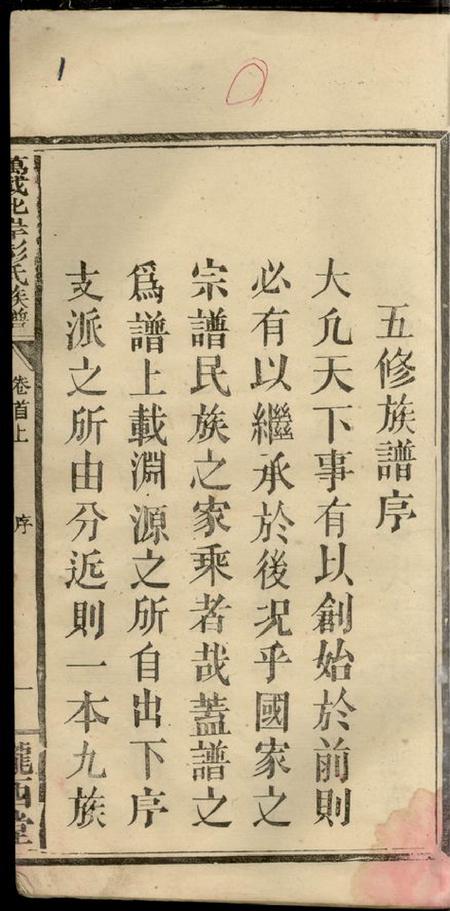 五修族譜序
大凢天下事有以創始於前則
必有以繼承於後况乎國家之
宗譜民族之家乘者哉蓋譜之
爲譜上載淵源之所自出下序
支派之所由分近則一本九族
萬載北岸彭氏族譜
卷首上
序
一
隴西堂
1